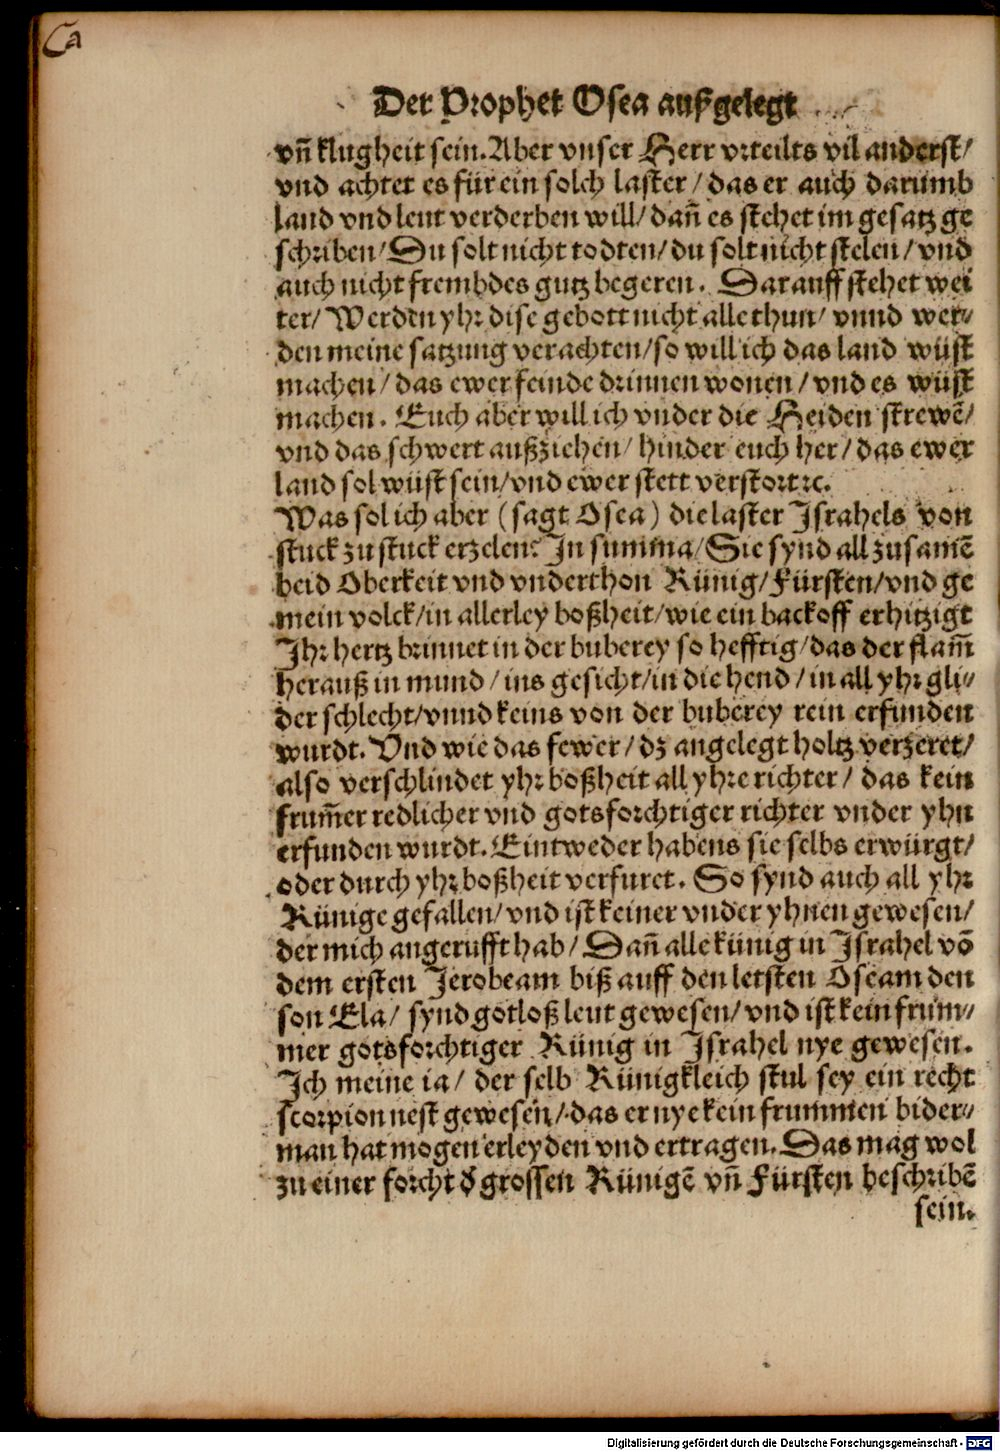 Ca
Der Prophet Osea außgelegt
vñ klugheit sein. Aber vnser Herr vrteilts vil anderst/
vnd achtet es für ein solch laster / das er auch darumb
land vnd leut verderben will/ dañ es stehet im gesatz ge
schriben/ Du solt nicht todten/ du solt nicht stelen / vnd
auch nicht frembdes gutz begeren. Darauff stehet wei
ter/ Werden yhr dise gebott nicht alle thun/ vnnd wer⸗
den meine satzung verachten/ so will ich das land wüst
machen / das ewer feinde drinnen wonen / vnd es wüst
machen. Euch aber will ich vnder die Heiden strewē/
vnd das schwert außziehen/ hinder euch her / das ewer
land sol wüst sein/ vnd ewer stett verstort ꝛc.
Was sol ich aber (sagt Osea) die laster Israhels von
stuck zu stuck erzelen? In summa/ Sie synd all zusamē
beid Oberkeit vnd vnderthon Künig/ Fürsten/ vnd ge
mein volck/ in allerley boßheit/ wie ein backoff erhitzigt
Ihr hertz brinnet in der buberey so hefftig/ das der flam̃
herauß in mund / ins gesicht/ in die hend / in all yhr gli⸗
der schlecht/ vnnd keins von der buberey rein erfunden
wurdt. Vnd wie das fewer / dz angelegt holtz verzeret/
also verschlindet yhr boßheit all yhre richter / das kein
frum̃er redlicher vnd gotsforchtiger richter vnder yhn
erfunden wurdt. Eintweder habens sie selbs erwürgt/
oder durch yhr boßheit verfuret. So synd auch all yhr
Künige gefallen/ vnd ist keiner vnder yhnen gewesen/
der mich angerufft hab / Dañ alle künig in Israhel vō
dem ersten Jerobeam biß auff den letsten Oseam den
son Ela/ synd gotloß leut gewesen/ vnd ist kein frum⸗
mer gotsforchtiger Künig in Israhel nye gewesen.
Ich meine ia/ der selb Künigkleich stul sey ein recht
scorpion nest gewesen/ das er nye kein frummen bider⸗
man hat mogen erleyden vnd ertragen. Das mag wol
zu einer forcht d̕ grossen Künigē vñ Fürsten beschribē
sein.
Digitalisierung gefördert durch die Deutsche Forschungsgemeinschaft - DFG